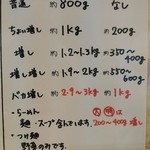 普通 約800g なし
ちょい増し 約1kg 約200g
増し 約1.2~1.3kg 約350~400g
増し増し 約1.9~2kg 約550~600g
バカ増し 約2.9~3kg 約1kg
・らーめん
麺・スープ含んでいます。200~400g増し
・つけ麺
野菜のみです。